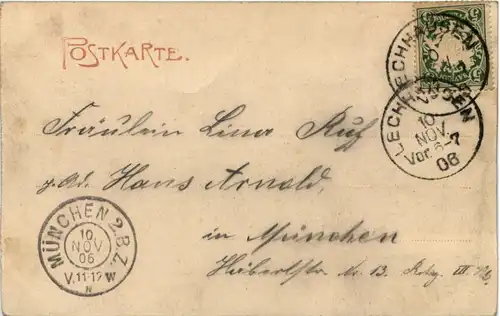 POSTKARTE.
LECHHAUSEN
LECHHAUSEN
10
NOV.
Vor. 6-7
06
Fräulein Lina Ruf
p. Ad. Hans Arnold,
in München
Nr. 13. III
MÜNCHEN 2.B.Z.
10
NOV
06
V.11-12 W
N
5